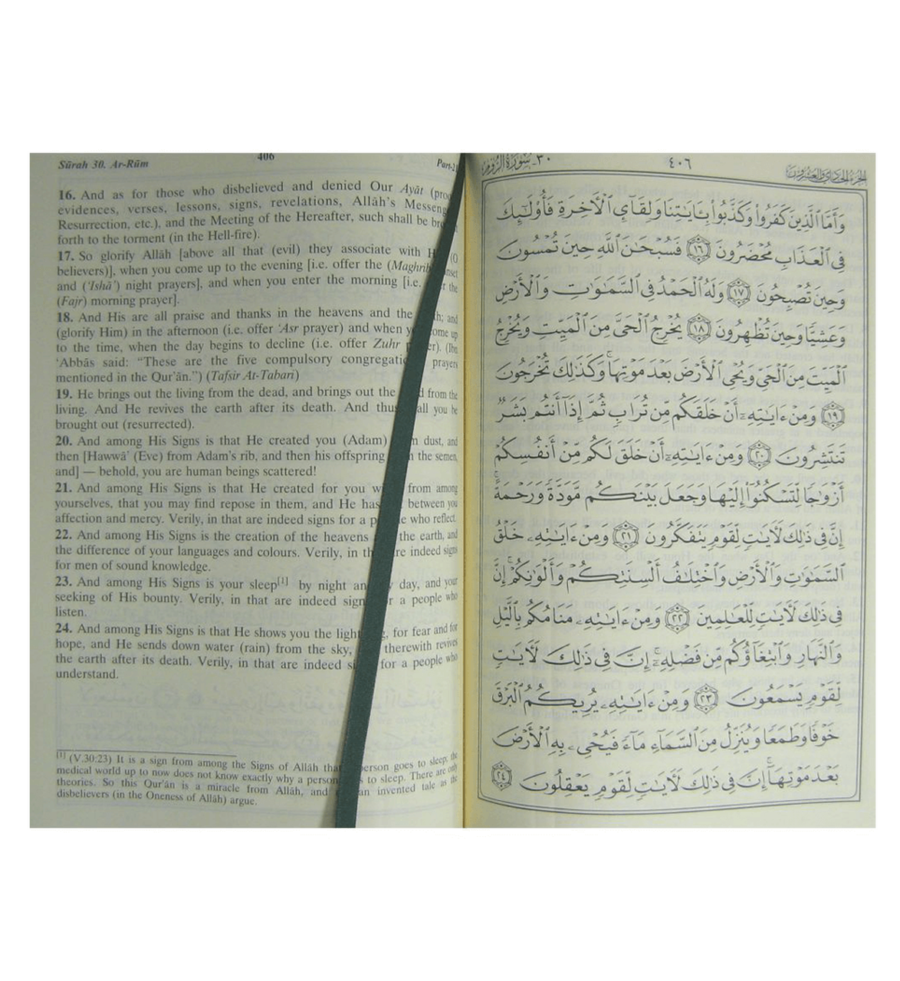 Sūrah 30. Ar-Rūm
406
Part-21
16. And as for those who disbelieved and denied Our Ayāt (pro
evidences, verses, lessons, signs, revelations, Allāh's Messeng
Resurrection, etc.), and the Meeting of the Hereafter, such shall be bro
forth to the torment (in the Hell-fire).
17. So glorify Allāh [above all that (evil) they associate with H (O
believers)], when you come up to the evening [i.e. offer the (Maghrib
and ('Ishā') night prayers], and when you enter the morning [i.e. the
(Fajr) morning prayer].
18. And His are all praise and thanks in the heavens and the and
(glorify Him) in the afternoon (i.e. offer 'Asr prayer) and when ome up
to the time, when the day begins to decline (i.e. offer Zuhr er). (Ibn
'Abbās said: "These are the five compulsory congregatic prayers
mentioned in the Qur'ān.") (Tafsir At-Tabari)
19. He brings out the living from the dead, and brings out the from the
living. And He revives the earth after its death. And thus all you be
brought out (resurrected).
20. And among His Signs is that He created you (Adam) dust, and
then [Hawwā' (Eve) from Adam's rib, and then his offspring the semen,
and] — behold, you are human beings scattered!
21. And among His Signs is that He created for you w from among
yourselves, that you may find repose in them, and He has between you
affection and mercy. Verily, in that are indeed signs for a p e who reflect.
22. And among His Signs is the creation of the heavens the earth, and
the difference of your languages and colours. Verily, in th re indeed signs
for men of sound knowledge.
23. And among His Signs is your sleep[1] by night an day, and your
seeking of His bounty. Verily, in that are indeed sign r a people who
listen.
24. And among His Signs is that He shows you the light g, for fear and for
hope, and He sends down water (rain) from the sky, therewith revives
the earth after its death. Verily, in that are indeed si for a people who
understand.
[1] (V.30:23) It is a sign from among the Signs of Allāh that person goes to sleep, the
medical world up to now does not know exactly why a person to sleep. There are only
theories. So this Qur'ān is a miracle from Allāh, and an invented tale as the
disbelievers (in the Oneness of Allāh) argue.
الجزء الحادي والعشرون
٤٠٦
٣٠ـ سورة الروم
وَأَمَّا ٱلَّذِينَ كَفَرُوا۟ وَكَذَّبُوا۟ بِـَٔايَـٰتِنَا وَلِقَآئِ ٱلْـَٔاخِرَةِ فَأُو۟لَـٰٓئِكَ
فِى ٱلْعَذَابِ مُحْضَرُونَ ١٦ فَسُبْحَـٰنَ ٱللَّهِ حِينَ تُمْسُونَ
وَحِينَ تُصْبِحُونَ ١٧ وَلَهُ ٱلْحَمْدُ فِى ٱلسَّمَـٰوَٰتِ وَٱلْأَرْضِ
وَعَشِيًّا وَحِينَ تُظْهِرُونَ ١٨ يُخْرِجُ ٱلْحَىَّ مِنَ ٱلْمَيِّتِ وَيُخْرِجُ
ٱلْمَيِّتَ مِنَ ٱلْحَىِّ وَيُحْىِ ٱلْأَرْضَ بَعْدَ مَوْتِهَا ۚ وَكَذَٰلِكَ تُخْرَجُونَ
١٩ وَمِنْ ءَايَـٰتِهِۦٓ أَنْ خَلَقَكُم مِّن تُرَابٍ ثُمَّ إِذَآ أَنتُم بَشَرٌ
تَنتَشِرُونَ ٢٠ وَمِنْ ءَايَـٰتِهِۦٓ أَنْ خَلَقَ لَكُم مِّنْ أَنفُسِكُمْ
أَزْوَٰجًا لِّتَسْكُنُوٓا۟ إِلَيْهَا وَجَعَلَ بَيْنَكُم مَّوَدَّةً وَرَحْمَةً ۚ
إِنَّ فِى ذَٰلِكَ لَـَٔايَـٰتٍ لِّقَوْمٍ يَتَفَكَّرُونَ ٢١ وَمِنْ ءَايَـٰتِهِۦ خَلْقُ
ٱلسَّمَـٰوَٰتِ وَٱلْأَرْضِ وَٱخْتِلَـٰفُ أَلْسِنَتِكُمْ وَأَلْوَٰنِكُمْ ۚ إِنَّ
فِى ذَٰلِكَ لَـَٔايَـٰتٍ لِّلْعَـٰلِمِينَ ٢٢ وَمِنْ ءَايَـٰتِهِۦ مَنَامُكُم بِٱلَّيْلِ
وَٱلنَّهَارِ وَٱبْتِغَآؤُكُم مِّن فَضْلِهِۦٓ ۚ إِنَّ فِى ذَٰلِكَ لَـَٔايَـٰتٍ
لِّقَوْمٍ يَسْمَعُونَ ٢٣ وَمِنْ ءَايَـٰتِهِۦ يُرِيكُمُ ٱلْبَرْقَ
خَوْفًا وَطَمَعًا وَيُنَزِّلُ مِنَ ٱلسَّمَآءِ مَآءً فَيُحْىِۦ بِهِ ٱلْأَرْضَ
بَعْدَ مَوْتِهَآ ۚ إِنَّ فِى ذَٰلِكَ لَـَٔايَـٰتٍ لِّقَوْمٍ يَعْقِلُونَ ٢٤